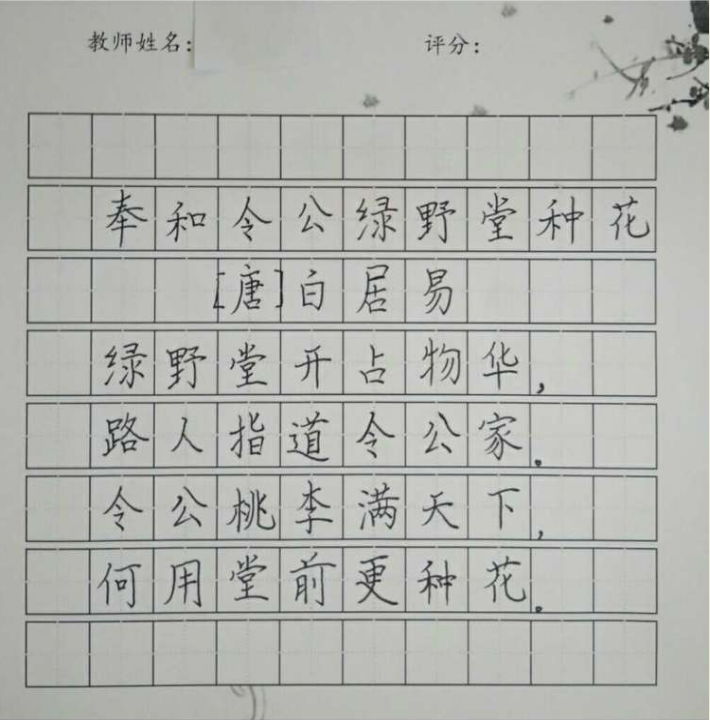 教师姓名: 评分:
奉和令公绿野堂种花
[唐]白居易
绿野堂开占物华,
路人指道令公家.
令公桃李满天下,
何用堂前更种花.